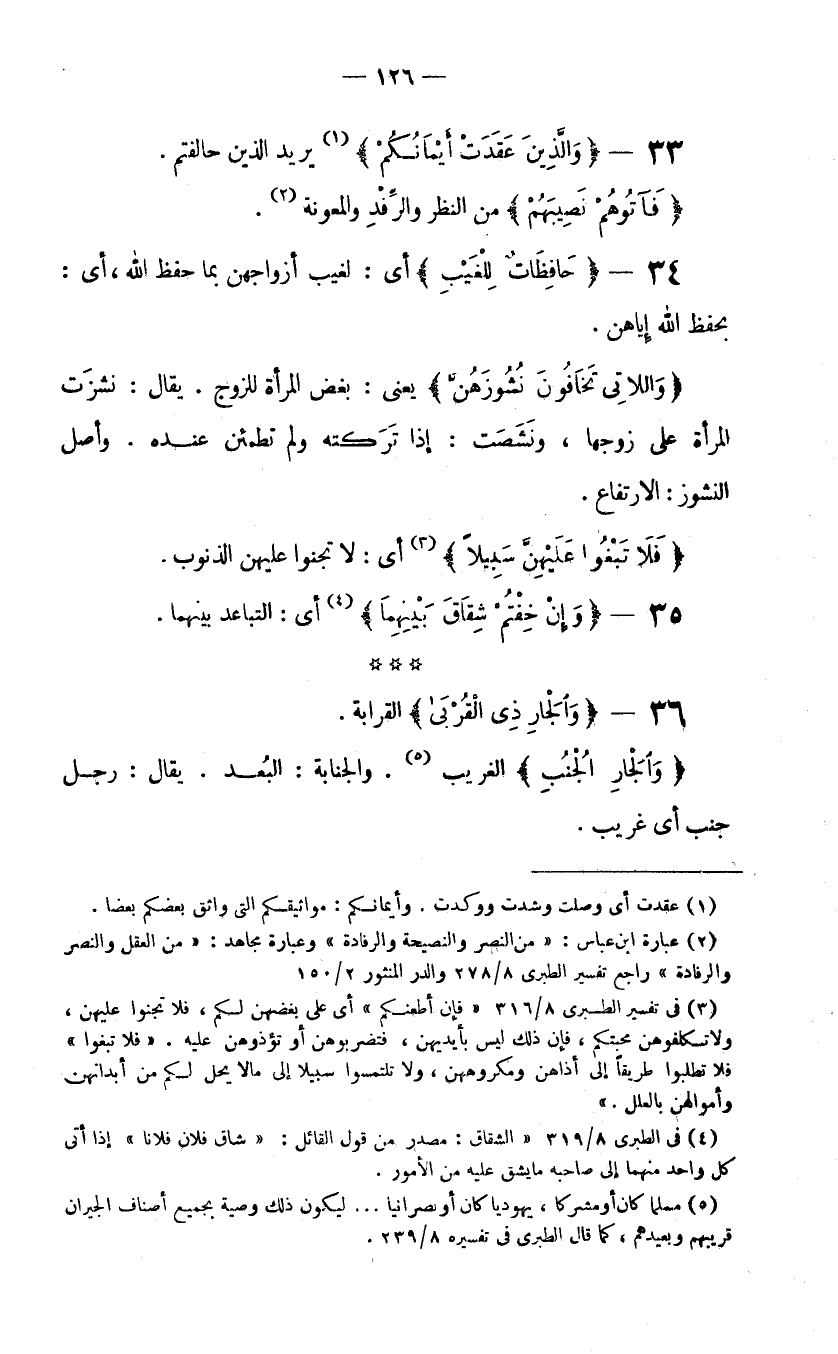 — ١٢٦ —
٣٣ — ﴿ وَالَّذِينَ عَقَدَتْ أَيْمَانُكُمْ ﴾ (١) يريد الذين حالفتم .
﴿ فَآتُوهُمْ نَصِيبَهُمْ ﴾ من النظر والرِّفْدِ والمعونة (٢) .
٣٤ — ﴿ حَافِظَاتٌ لِلْغَيْبِ ﴾ أى : لغيب أزواجهن بما حفظ الله ، أى :
بحفظ الله إياهن .
﴿ وَاللاتِى تَخَافُونَ نُشُوزَهُنَّ ﴾ يعنى : بغض المرأة للزوج . يقال : نشزَت
المرأة على زوجها ، ونَشَصَت : إذا تَرَكته ولم تطمئن عنده . وأصل
النشوز : الارتفاع .
﴿ فَلَا تَبْغُوا عَلَيْهِنَّ سَبِيلاً ﴾ (٣) أى : لا تجنوا عليهن الذنوب .
٣٥ — ﴿ وَإِنْ خِفْتُمْ شِقَاقَ بَيْنِهِمَا ﴾ (٤) أى : التباعد بينهما .
* * *
٣٦ — ﴿ وَالْجَارِ ذِى الْقُرْبَىٰ ﴾ القرابة .
﴿ وَالْجَارِ الْجُنُبِ ﴾ الغريب (٥) . والجنابة : البُعد . يقال : رجل
جنب أى غريب .
(١) عقدت أى وصلت وشدت ووكدت . وأيمانكم : مواثيقكم التى واثق بعضكم بعضا .
(٢) عبارة ابن عباس : « من النصر والنصيحة والرفادة » وعبارة مجاهد : « من العقل والنصر
والرفادة » راجع تفسير الطبرى ٢٧٨/٨ والدر المنثور ١٥٠/٢
(٣) فى تفسير الطبرى ٣١٦/٨ « فإن أطعنكم » أى على بغضهن لكم ، فلا تجنوا عليهن ،
ولا تكلفوهن محبتكم ، فإن ذلك ليس بأيديهن ، فتضربوهن أو تؤذوهن عليه . « فلا تبغوا »
فلا تطلبوا طريقاً إلى أذاهن ومكروههن ، ولا تلتمسوا سبيلا إلى مالا يحل لكم من أبدانهن
وأموالهن بالعلل . »
(٤) فى الطبرى ٣١٩/٨ « الشقاق : مصدر من قول القائل : « شاق فلان فلانا » إذا أتى
كل واحد منهما إلى صاحبه مايشق عليه من الأمور .
(٥) مسلما كان أو مشركا ، يهوديا كان أو نصرانيا ... ليكون ذلك وصية بجميع أصناف الجيران
قريبهم وبعيدهم ، كما قال الطبرى فى تفسيره ٢٣٩/٨ .